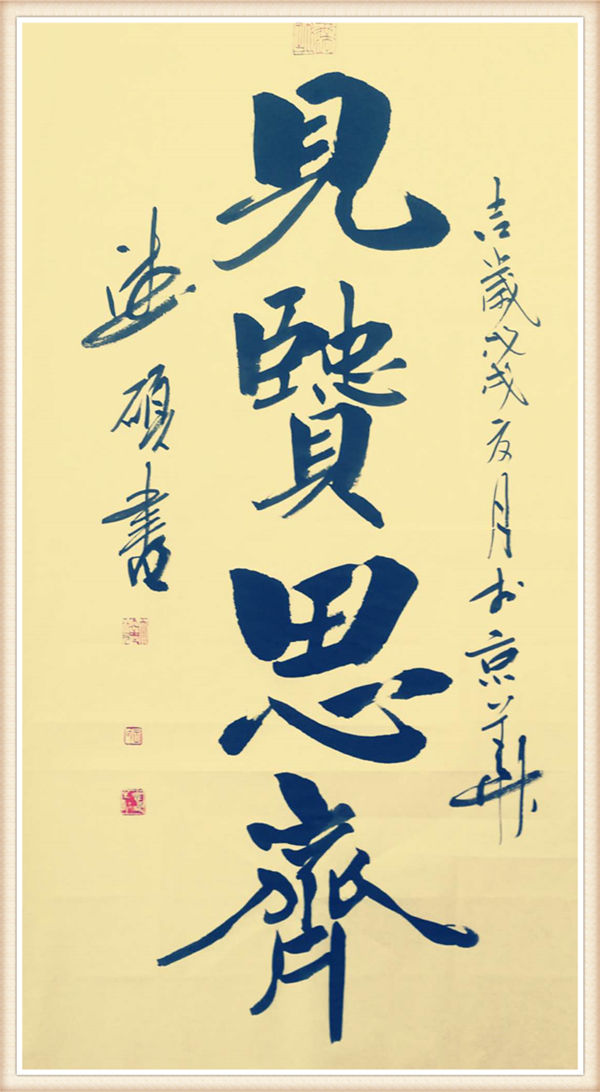 吉歲戊戌夏月於京華
見賢思齊
碩書